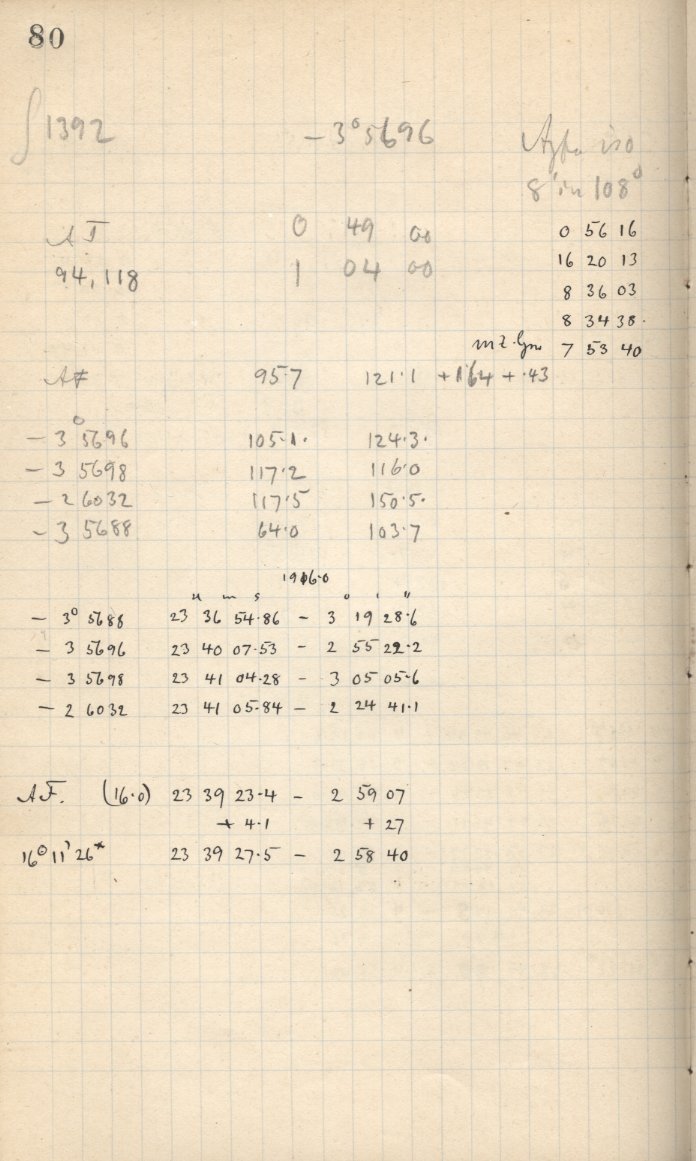 80
∫1392 -3°5696 Agfa iso
8' in 108°
AF 0 49 00 0 56 16
94,118 1 04 00 16 20 13
8 36 03
8 34 38.
7 53 40
AF 95.7 121.1 +164 + .43
-3°5696 105.1. 124.3.
-3 5698 117.2 116.0
-2 6032 117.5 150.5.
-3 5688 64.0 103.7
1916.0
H m s ° ' "
-3° 5688 23 36 54.86 - 3 19 28.6
-3 5696 23 40 07.53 - 2 55 22.2
-3 5698 23 41 04.28 - 3 05 05.6
-2 6032 23 41 05.84 - 2 24 41.1
AF. (16.0) 23 39 23.4 - 2 59 07
+ 4.1 + 27
16° 11' 26* 23 39 27.5 - 2 58 40